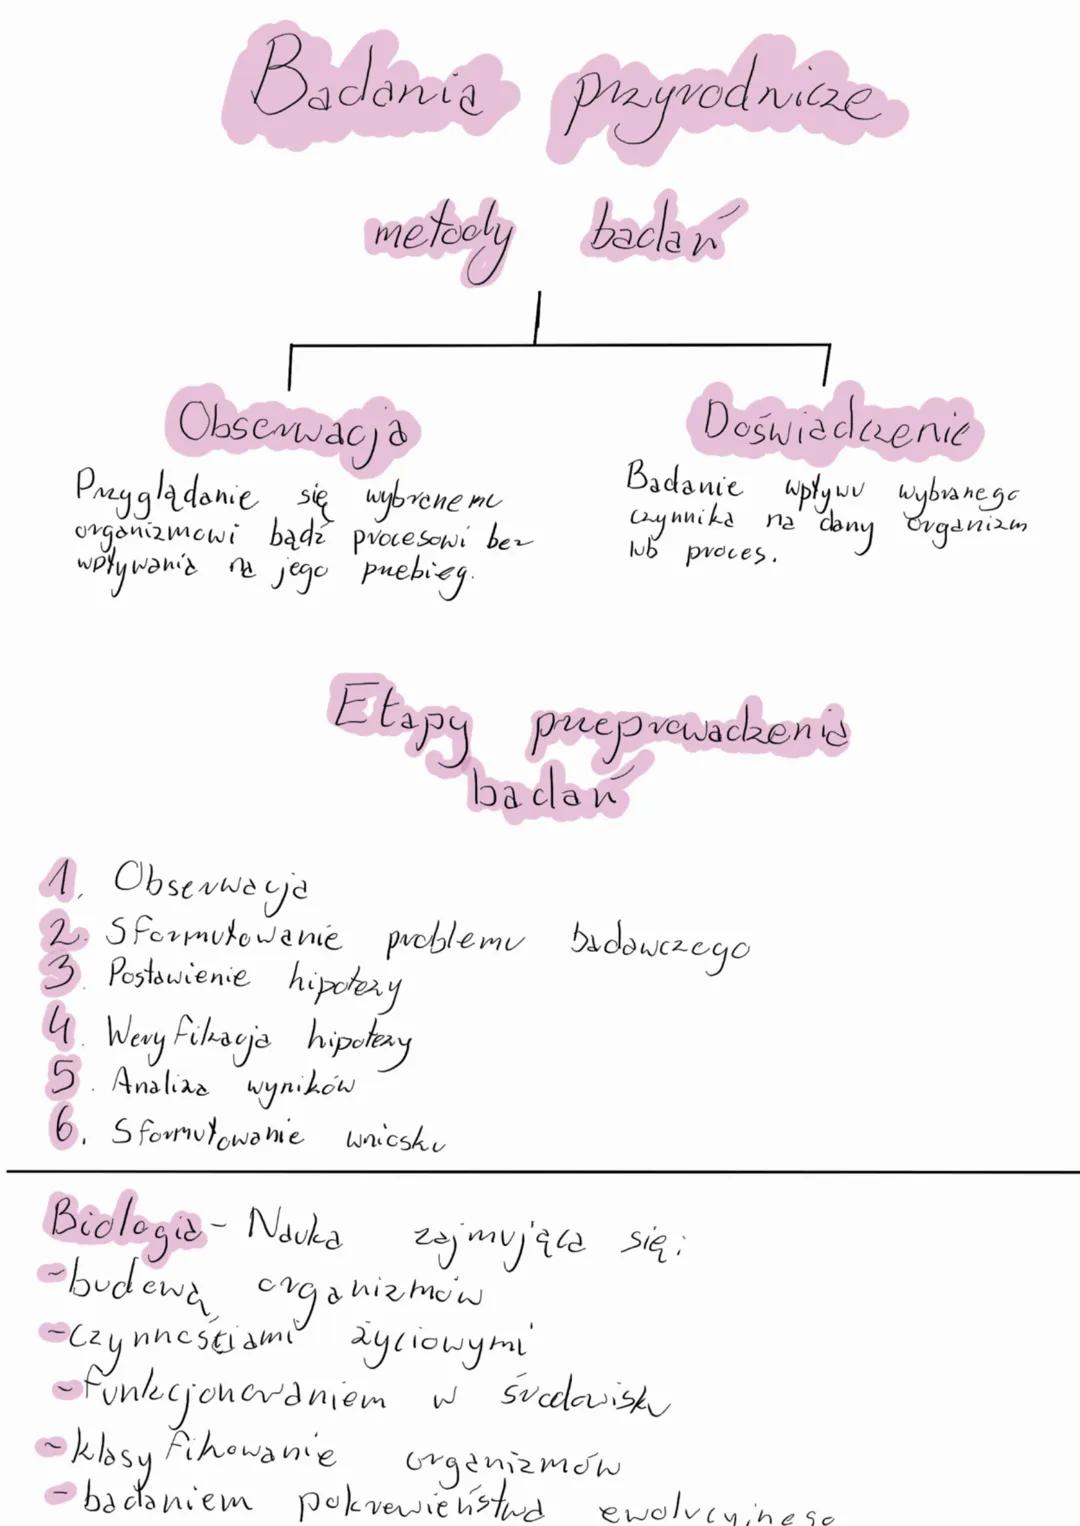 Badania przyrodnicze
metody badań
Obserwacja
Przyglądanie się wybranemu
organizmowi bądź procesowi bez
wpływania na jego przebieg.
Doświadczenie
Badanie wpływu wybranego
czynnika na dany organizm
lub proces.
Etapy przeprowadzenia
badań
1. Obserwacja
2. Sformułowanie problemu badawczego
3. Postawienie hipotezy
4. Weryfikacja hipotezy
5. Analiza wyników
6. Sformułowanie wniosku
Biologia - Nauka zajmująca się:
- budową organizmów
- czynnościami życiowymi
- funkcjonowaniem w środowisku
- klasyfikowanie organizmów
- badaniem pokrewieństwa ewolucyjnego